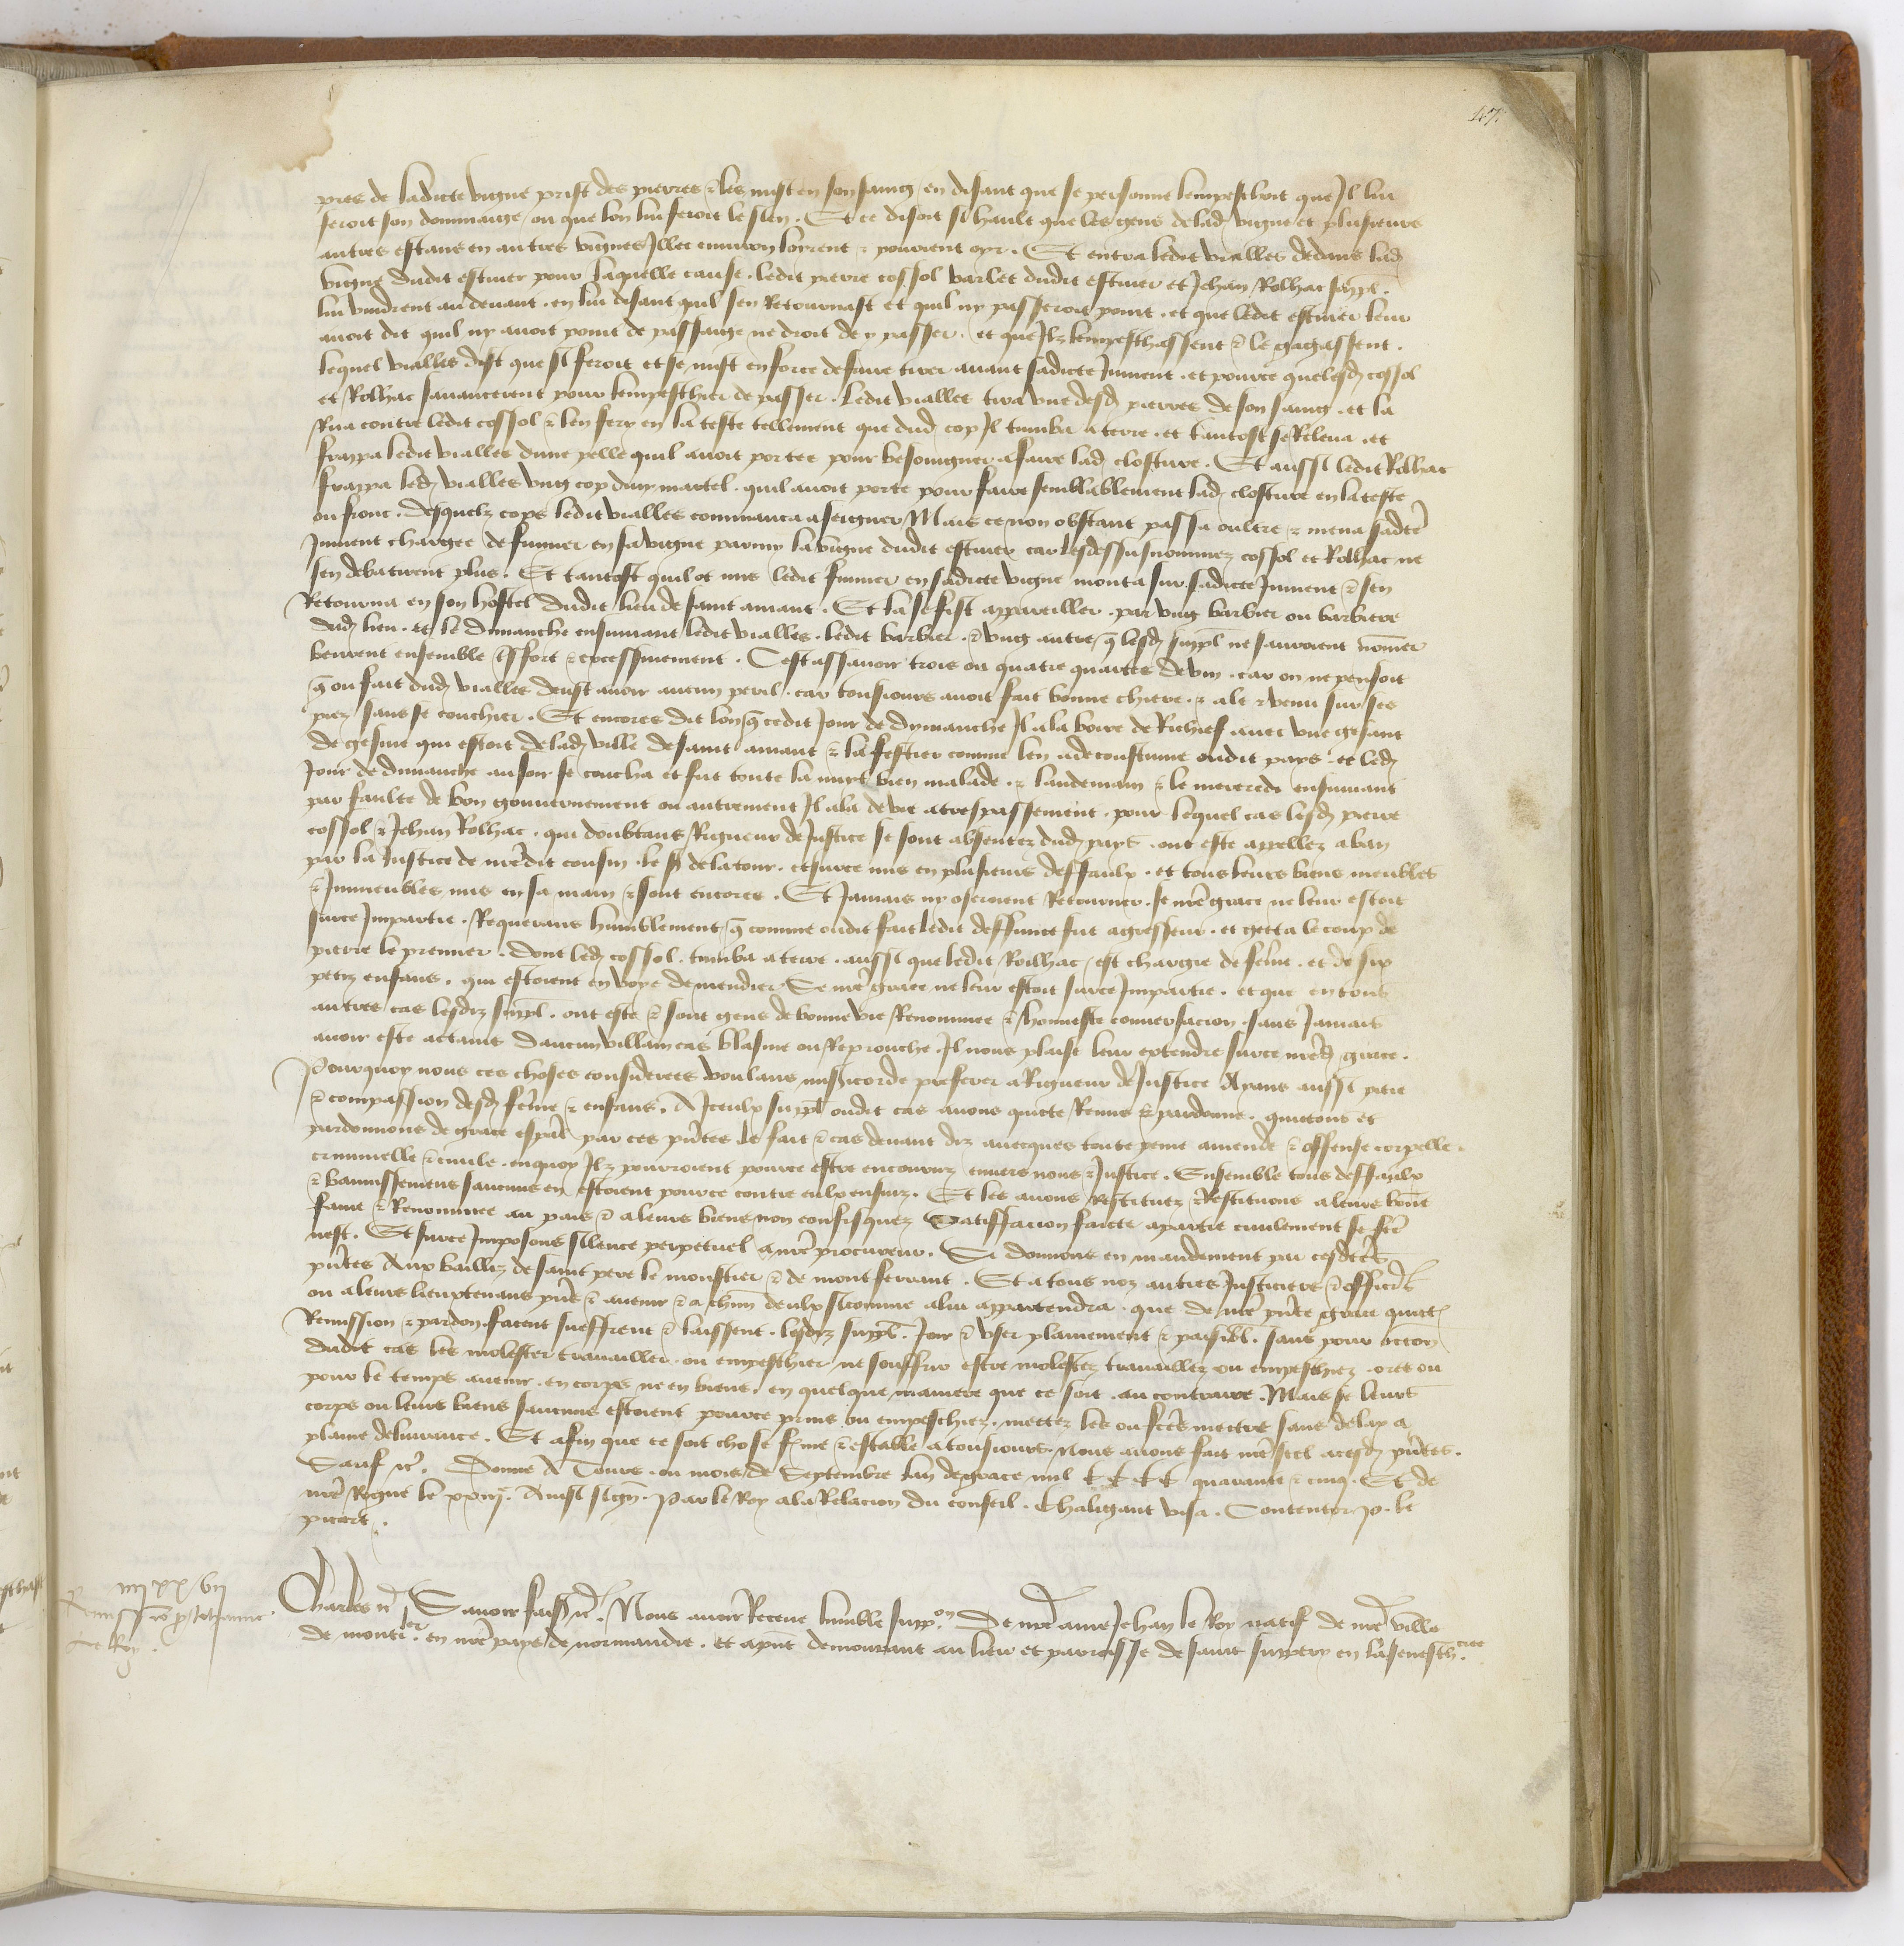 47
pres de ladicte vigne prist des pierres & les mist en son saing en disant que se personne lempeschoit que Il lui
feroit son dommaige ou que lon lui feroit le sien. Et ce disoit si hault que les gens de lad vigne et plusieurs
autres estans en autres vignes Illec environ loirent & povoient oyr. Et entra ledit vialles dedans lad
vigne dudit estiver pour laquelle cause. ledit pierre cossol varlet dudit estiver et Jehan Rolhac suppl.
lui vindrent au devant. en lui disant quil sen Retournast et quil ny passeroit point. et que ledit estiver leur
avoit dit quil ny avoit point de passaige ne droit de y passer. et que Ilz lempeschassent & le gagassent.
lequel vialles dist que si feroit et se mist en force de faire tirer avant sadicte Jument. et pource que lesd cossol
et Rolhac savancerent pour lempeschier de passer. Ledit vialles tira une desd pierres de son saing. et la
Rua contre ledit cossol & len fery en la teste tellement que dud cop Il tumba a terre. et tantost se Releva. et
frappa ledit vialles dune pelle quil avoit portee pour besoingner a faire lad closture. Et aussi ledit Rolhac
frappa led vialles ung cop dung martel. quil avoit porte pour faire semblablement lad closture en la teste
ou front. desquelz cops ledit vialles commança a seigner Mais ce non obstant passa oultre & mena sadcte
Jument chargee de fumier en sa vigne parmy la vigne dudit estiver car lesdessusnommez cossol et Rolhac ne
sen debatirent plus. Et tantost quil ot mis ledit fumier en sadicte vigne monta sur sadicte Jument & sen
Retourna en son hostel dudit lieu de saint amant. Et la se fist appareiller par ung barbier ou barbiere
dud lieu. et le dimanche ensuivant ledit vialles. ledit barbier. & ung autre q lesd suppl ne sauroient nommer
beurent ensemble fort & excessivement. Cest assavoir trois ou quatre quartes de vin. car on ne pensoit
q ou fait dud vialles deust avoir aucun peril. car tousiours avoit fait bonne chiere. & ale & venu sur ses
piez sans se couchier. Et encores dit lon q cedit Jour de dymanche Il ala boire de Richief avec une gisant
de gesine qui estoit de lad ville de saint amant & la festier comme len a de coustume oudit pays. et led
Jour de dimanche au soir se coucha et fut toute la nuyt bien malade. & landemain & le mercredi ensuivant
par faulte de bon gouvernement ou autrement Il ala de vie a trespassement. pour lequel cas lesd pierre
cossol & Jehan Rolhac. qui doubtans Rigueur de Justice se sont absentez dud pays. ont este appellez a ban
par la Justice de nredit cousin. le sr de latour. et surce mis en plusieurs deffaulx. et tous leurs biens meubles
& Immeubles mis en sa main & sont encores. Et Jamais ny oseroient Retourner. se nre grace ne leur estoit
surce Impartie. Requerans humblement q comme oudit fait ledit deffunct fut agresseur. et getta le coup de
pierre le premier. dont led cossol. tumba a terre. aussi que ledit Rolhac est chargie de feme. et de six
petiz enfans. qui estoient en voye de mendier Se nre grace ne leur estoit surce Impartie. et que en tous
autres cas lesdiz suppl. ont este & sont gens de bonne vie Renommee & honneste conversacion sans Jamais
avoir este actains daucun villain cas blasme ou Reprouche Il nous plaise leur extendre surce nred grace.
Pourquoy nous ces choses considerees voulans misericorde preferer a Rigueur de Justice Ayans aussi pitie
& compassion desd feme & enfans. A Iceulx suppl oudit cas avons quicte Remis & pardonne. quictons et
pardonnons de grace espal par ces pntes le fait & cas devant diz avecques toute peine amende & offense corpelle.
criminelle & civile. enquoy Ilz pourroient pource estre encouruz envers nous & Justice. Ensemble tous deffaulx
& bannissemens saucuns en estoient pource contre eulx ensuiz. Et les avons Restituez & Restituons a leurs bone
fame & Renommee au pais & a leurs biens non confisquez Satisfacion faicte a partie civilement se fce
nest. Et surce Imposons silence perpetuel a nre procureur. Si donnons en mandement par cesdctes
pntes Aux bailliz de saint pere le moustier & de montferrant. Et a tous noz autres Justiciers & officrs
ou a leurs lieuxtenans pns & avenir & a chun deulx sicomme a lui appartendra. que de nre pnte grace quict
Remission & pardon. facent sueffrent & laissent. lesdiz suppl. Joir & user plainement & paisibl. sans pour occon
dudit cas les molester travailler ou empeschier ne souffrir estre molestez travaillez ou empeschez. ores ou
pour le temps avenir. en corps ne en biens. en quelque maniere que ce soit. au contraire. Mais se leurs
corps ou leurs biens saucuns estoient pource prins ou empeschiez. mettez les ou fces mectre sans delay a
plaine delivrance. Et afin que ce soit chose fme & estable a tousiours. Nous avons fait mre seel a cesd pntes.
Sauf &c. Donne A Tours. ou mois de Septembre lan de grace mil CCCC quarante & cinq. Et de
nre Regne le xxiije. Ainsi sign. Par le Roy a la Relacion du conseil. Chaligant visa. Contentor p. le
picart.
iiij xx vij
Remission p Jehanne
Le Roy.
Charles &c Savoir fais &c. Nous avoir Receue lumble suppon. De nre ame Jehan le Roy natif de nre ville
de montier. en nre pays de normandie. et apnt demourant au lieu et parroisse de saint supery en la senesch.cree